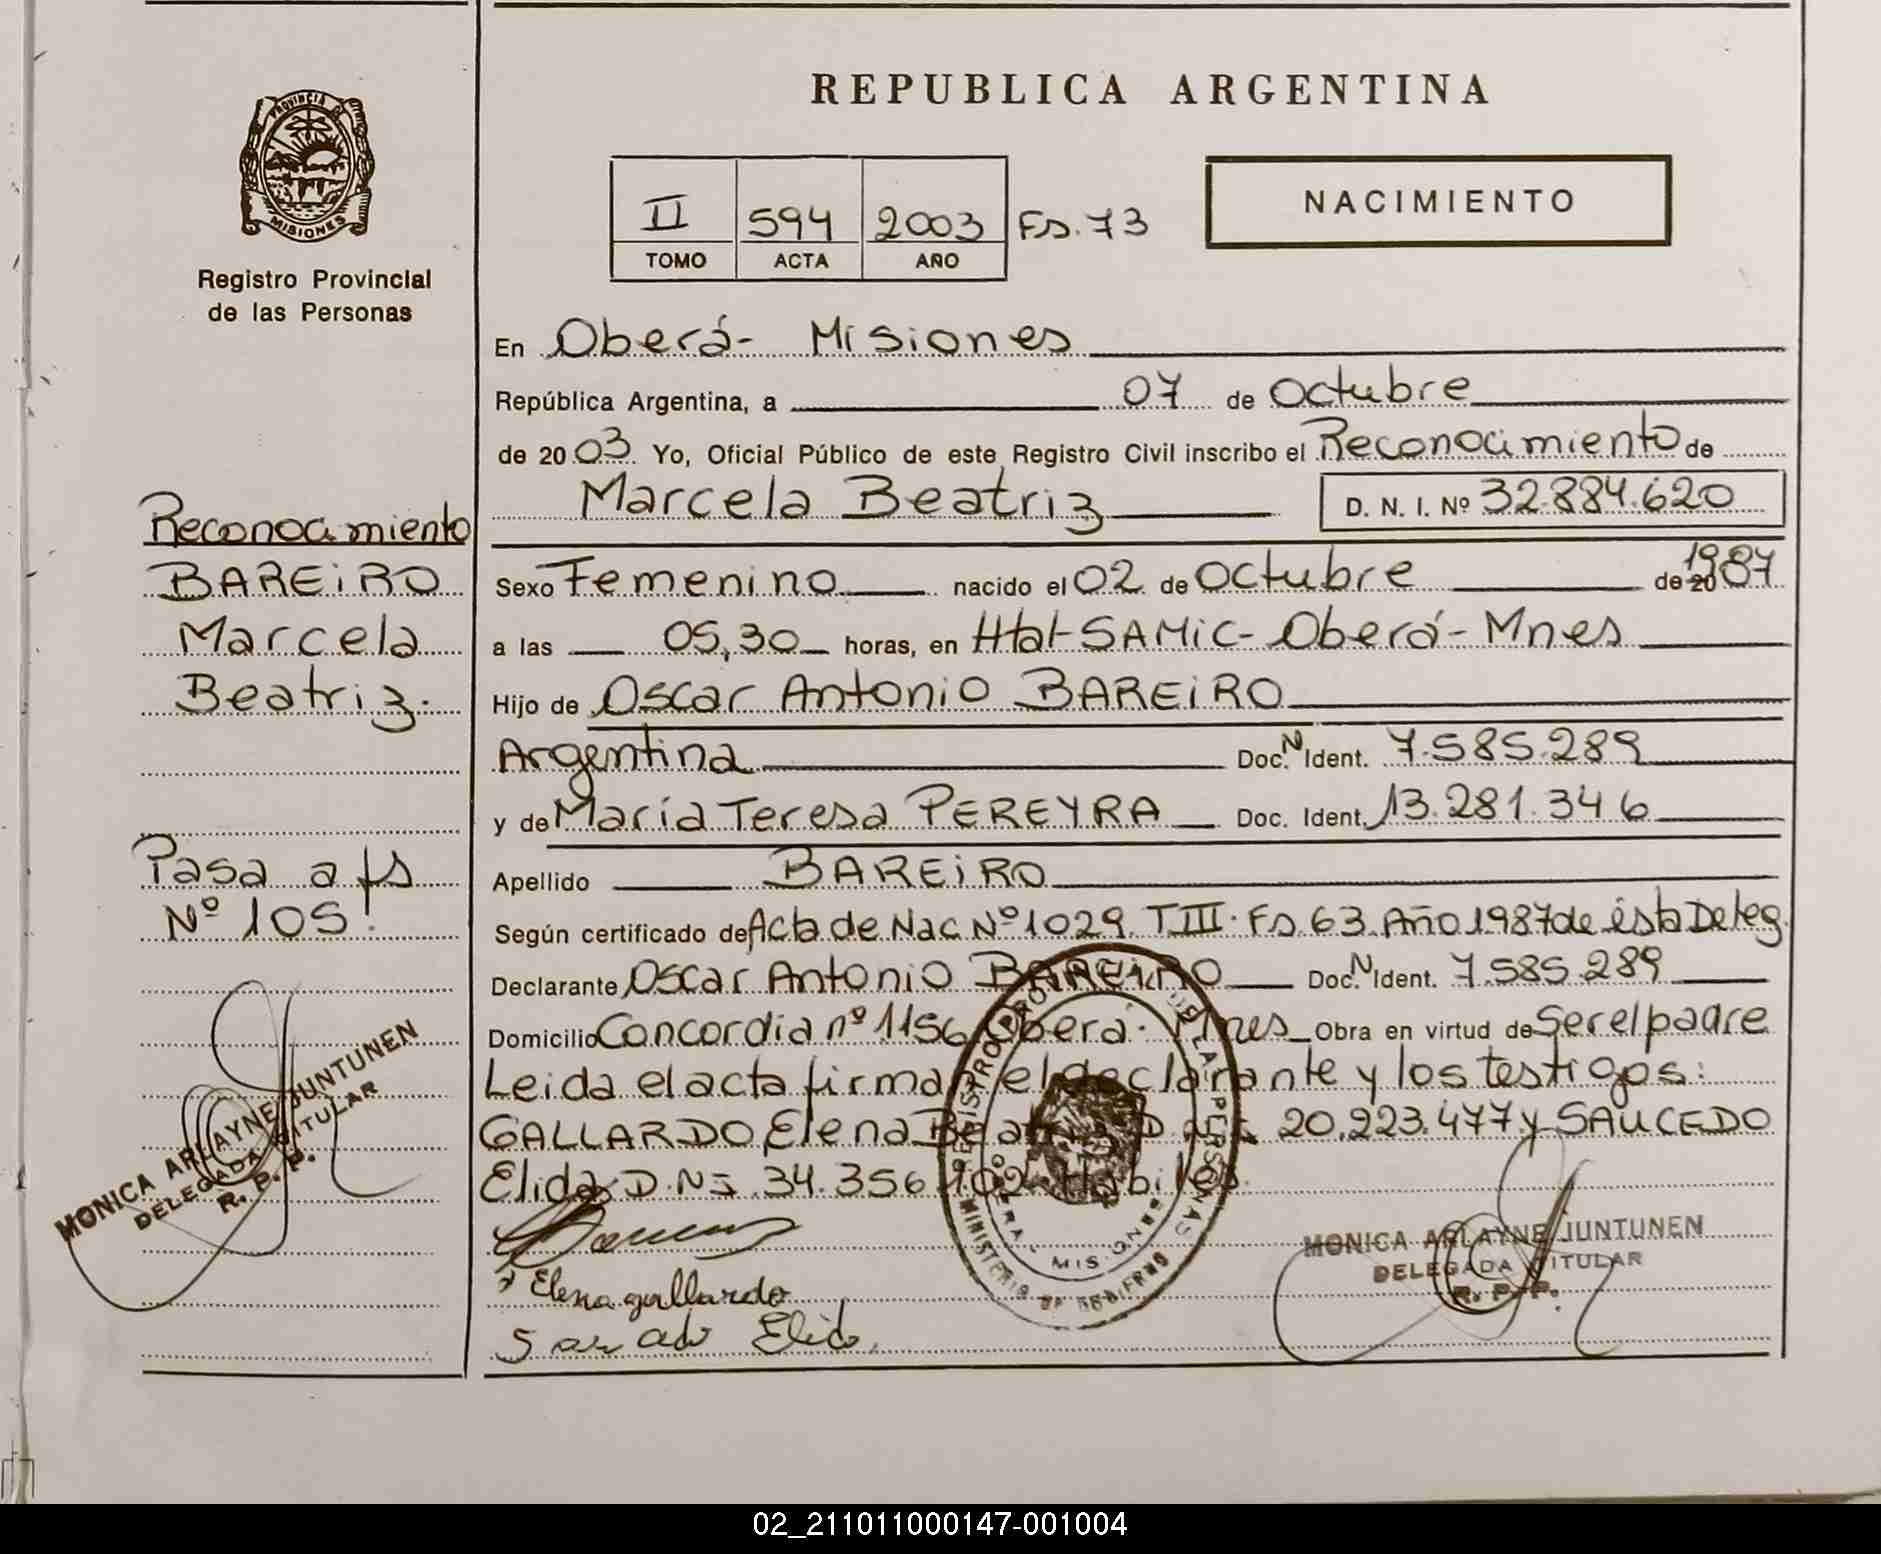 REPUBLICA ARGENTINA
PROVINCIA DE MISIONES
Registro Provincial
de las Personas
II 594 2003 Fs. 73
TOMO ACTA AÑO
NACIMIENTO
En Oberá - Misiones
República Argentina, a 07 de Octubre
de 20 03 Yo, Oficial Público de este Registro Civil inscribo el Reconocimiento de
Marcela Beatriz D. N. I. Nº 32.884.620
Sexo Femenino nacido el 02 de Octubre de 20 1987
a las 05,30 horas, en Htal SAMIC - Oberá - Mnes
Hijo de Oscar Antonio BAREiRO
Argentina Doc. N Ident. 7.585.289
y de María Teresa PEREYRA Doc. Ident. 13.281.346
Apellido BAREiRO
Según certificado de Acta de Nac Nº 1029. T III. Fs. 63. Año 1987 de ésta Deleg.
Declarante Oscar Antonio BAREiRO Doc. N Ident. 7.585.289
Domicilio Concordia nº 1156 Oberá. Mnes Obra en virtud de Ser el padre
Leida el acta firman el declarante y los testigos:
GALLARDO Elena Beatriz D.N.I. 20.223.477 y SAUCEDO
Elida D.N.I. 34.356.102 Habiles.
Elena gallardo
Elida
MONICA ARLAYNE JUNTUNEN
DELEGADA TITULAR
R. P. P.
REGISTRO PROVINCIAL DE LAS PERSONAS
OBERA - MISIONES
MINISTERIO DE GOBIERNO
Reconocimiento
BAREiRO
Marcela
Beatriz.
Pasa a fs
Nº 105.
MONICA ARLAYNE JUNTUNEN
DELEGADA TITULAR
R. P. P.
02_211011000147-001004